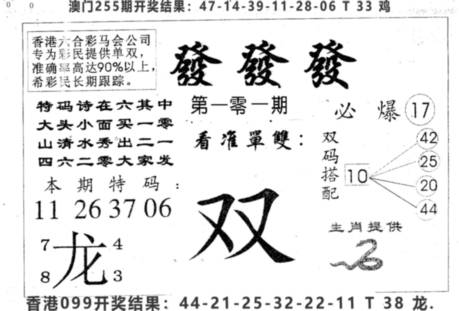 澳门255期开奖结果：47-14-39-11-28-06 T 33 鸡
香港六合彩马会公司
专为彩民提供单双，
准确率高达90%以上，
希彩民长期跟踪。
發 發 發
特码诗在六其中
大头小面买一零
山清水秀出二一
四六二零大家发
第一零一期
看准單雙：
必爆 17
双码搭配
10
42
25
20
44
本期特码：
11 26 37 06
双
生肖提供
7 4
龙
8 3
香港099开奖结果：44-21-25-32-22-11 T 38 龙.